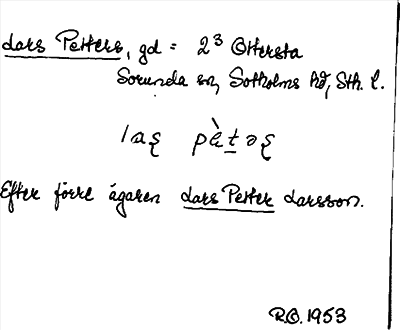 Lars Petters, gd = 2³ Ottersta
Sorunda sn, Sotholms hd, Sth. l.
Efter förre ägaren Lars Petter Larsson.
R.O. 1953